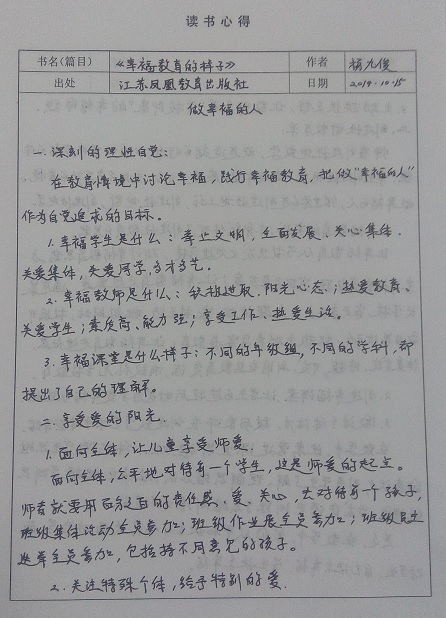 读书心得
书名(篇目) 《幸福教育的样子》 作者 杨九俊
出处 江苏凤凰教育出版社 日期 2014.10.15
做幸福的人
一.深刻的理性自觉:
在教育情境中讨论幸福,践行幸福教育,把做“幸福的人”
作为自觉追求的目标。
1.幸福学生是什么:举止文明,全面发展、关心集体、
关爱集体,关爱同学,多才多艺。
2.幸福教师是什么:积极进取、阳光心态;热爱教育、
关爱学生;素质高、能力强;享受工作、热爱生活。
3.幸福课堂是什么样子:不同的年级组,不同的学科,都
提出了自己的理解。
二.享受爱的阳光.
1.面向全体,让儿童享受师爱.
面向全体,公平地对待每一个学生,这是师爱的起点。
师者就要用百分之百的责任感、爱、关心,去对待每一个孩子,
班级集体活动全员参加;班级作业展全员参加;班级民主
选举全员参加,包括持不同意见的孩子。
2.关注特殊个体,给予特别的爱.